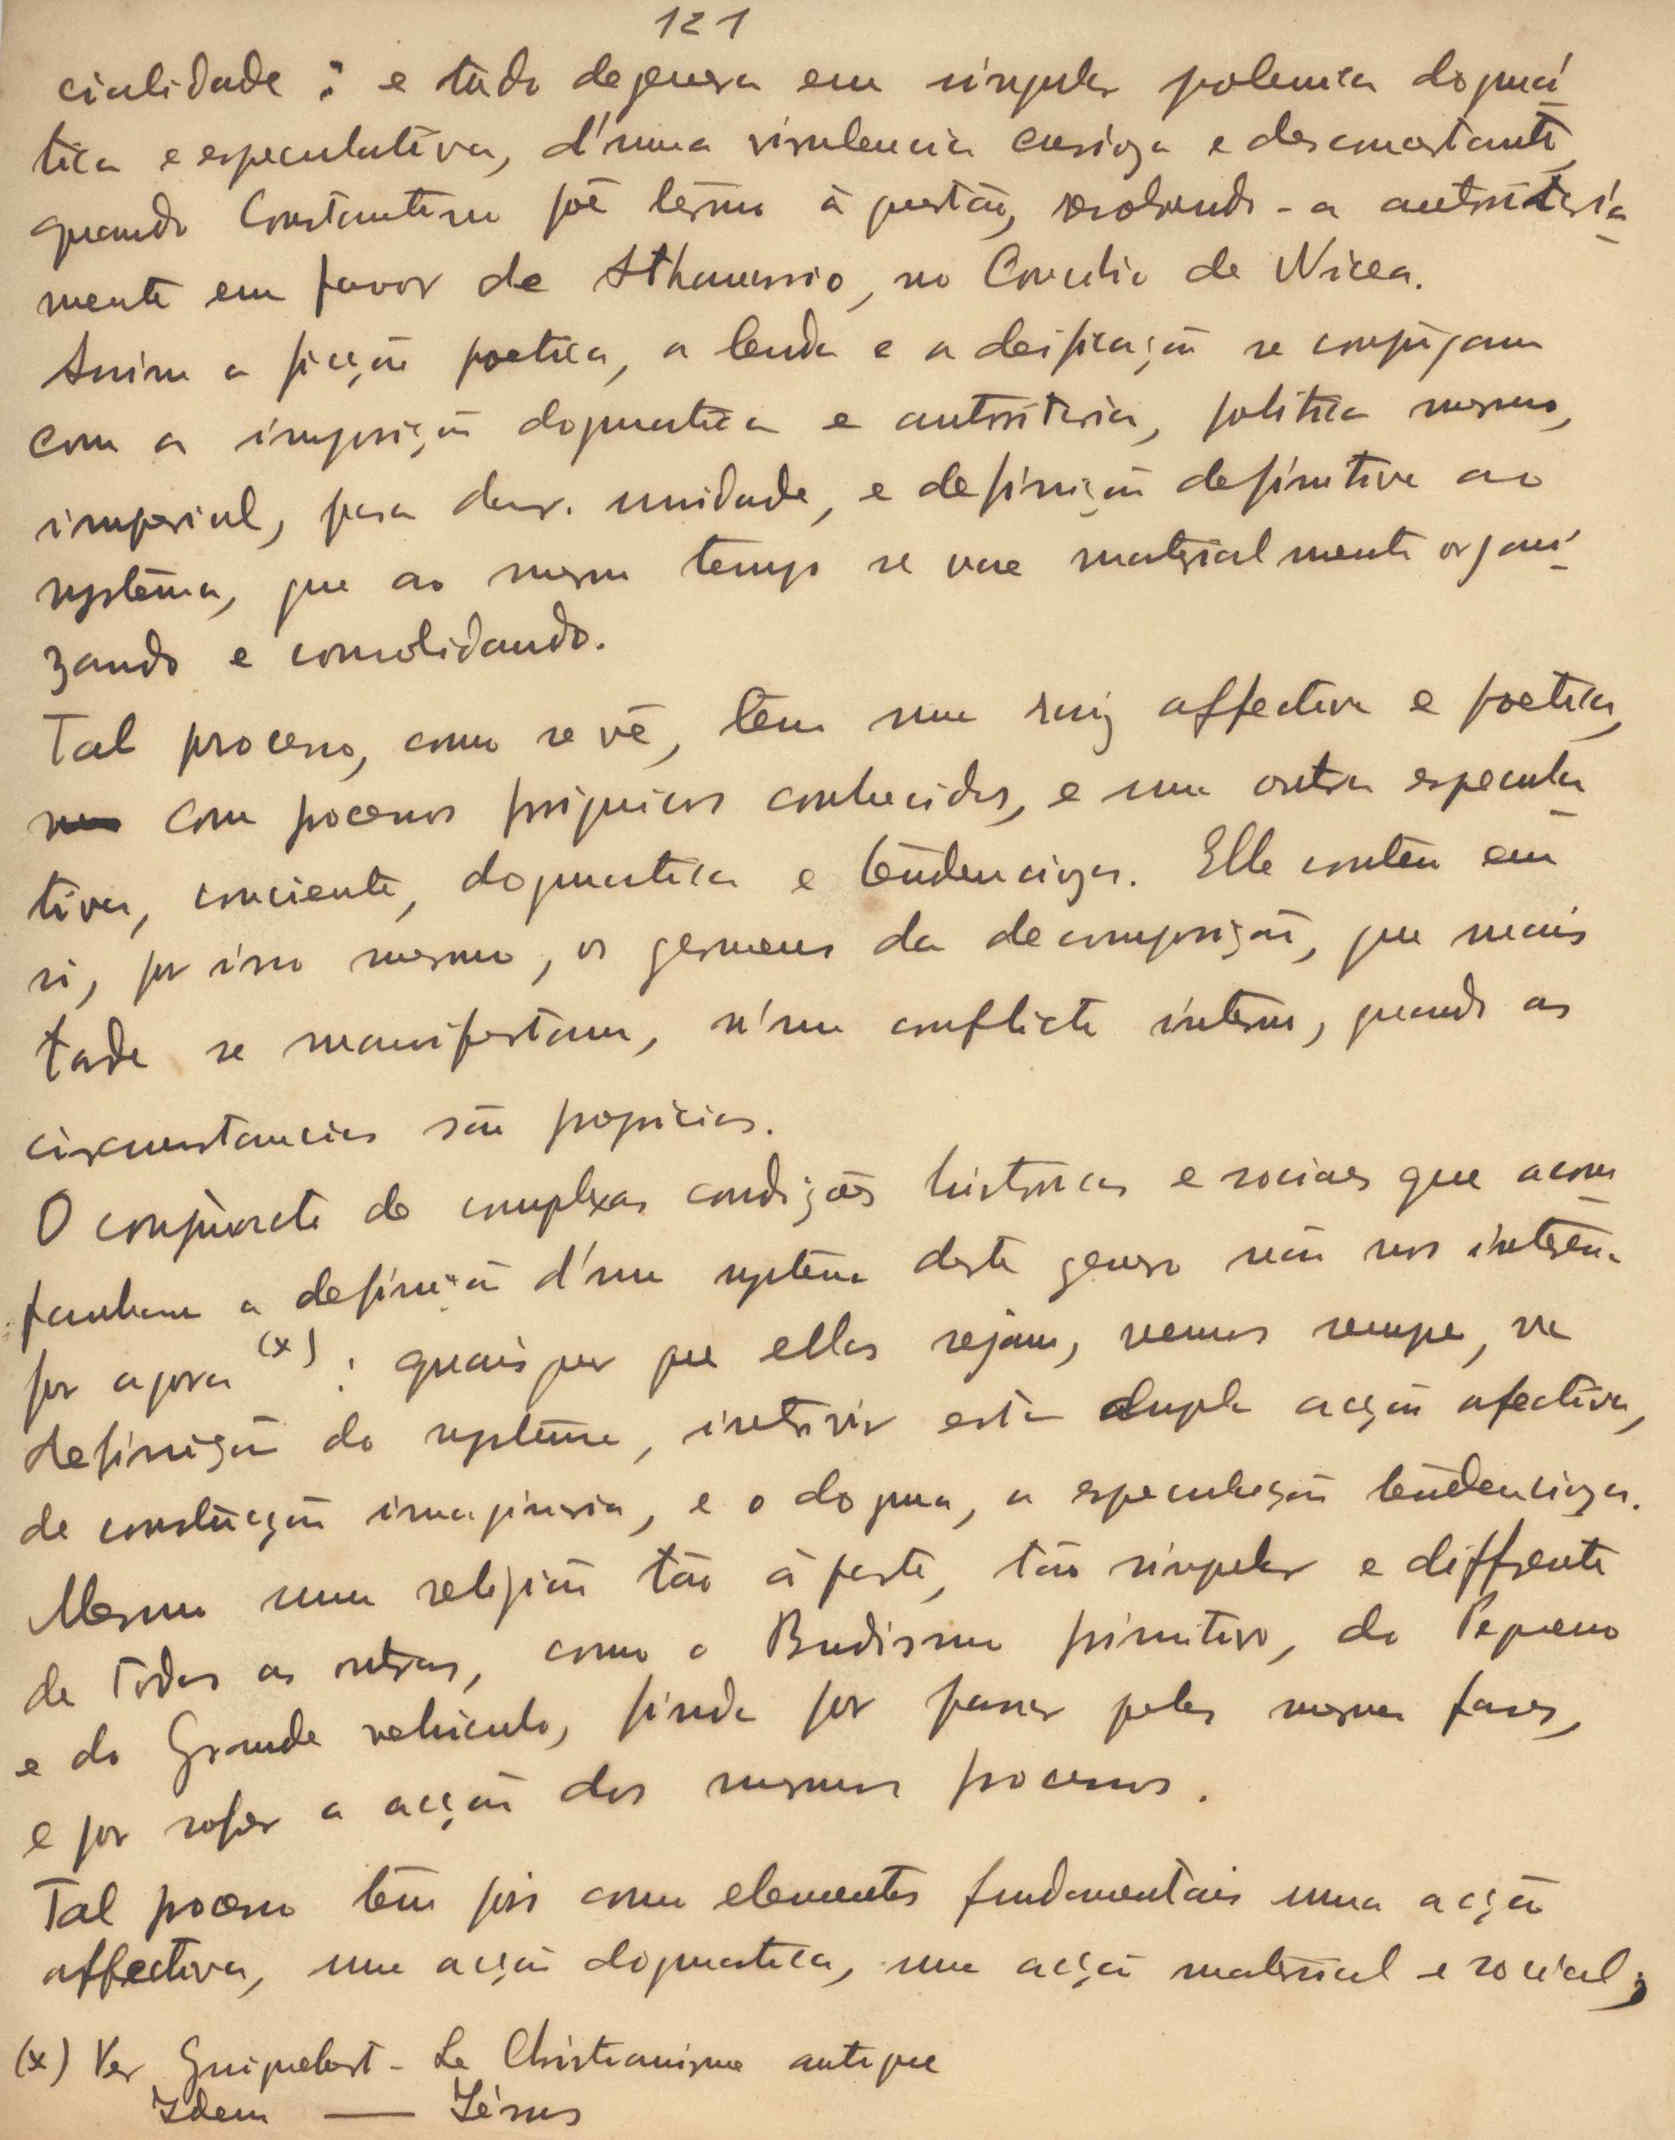 121
cialidade : e tudo degenera em singular polemica dogmá-
tica e especulativa, d'uma virulencia curiosa e desconcertante,
quando Constantino põe têrmo à questão, resolvendo-a autoritaria-
mente em favor de Athanasio, no Concilio de Nicea.
Assim a ficção poetica, a lenda e a deificação se conjugam
com a imposição dogmatica e autoritaria, politica mesmo,
imperial, para dar unidade, e definição definitiva ao
systema, que ao mesmo tempo se vae materialmente organi-
zando e consolidando.
Tal processo, como se vê, tem uma raiz affectiva e poetica,
com processos psiquicos conhecidos, e uma outra especula-
tiva, consciente, dogmatica e tendenciosa. Elle contem em
si, por isso mesmo, os germens da decomposição, que mais
tarde se manifestam, n'um conflicto interno, quando as
circunstancias são propicias.
O conjuncto de complexas condições historicas e sociaes que acom-
panham a definição d'um systema deste genero não nos interessa
por agora (x) : quaisquer que ellas sejam, vemos sempre, na
definição do systema, intervir esta dupla acção afectiva,
de construcção imaginaria, e o dogma, a especulação tendenciosa.
Mesmo uma religião tão à parte, tão singular e differente
de todas as outras, como o Budismo primitivo, do Pequeno
e do Grande vehiculo, finda por passar pelas mesmas fases,
e por sofrer a acção dos mesmos processos.
Tal processo tem pois como elementos fundamentais uma acção
affectiva, uma acção dogmatica, uma acção material e social;
(x) Ver Guignebert - Le Christianisme antique
Idem — Jésus